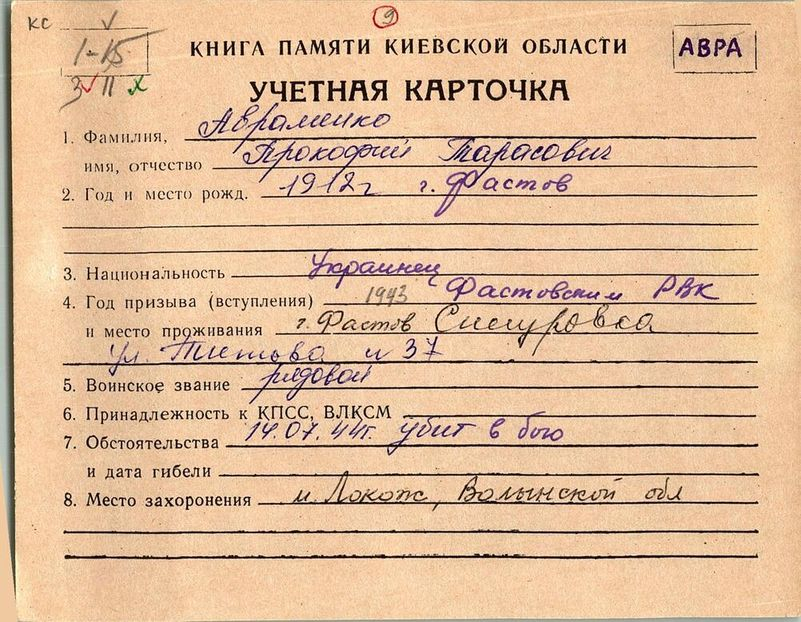 КС
9
1-15
3 II х
КНИГА ПАМЯТИ КИЕВСКОЙ ОБЛАСТИ
АВРА
УЧЕТНАЯ КАРТОЧКА
1. Фамилия, Авраменко
имя, отчество Прокофий Тарасович
2. Год и место рожд. 1912г г. Фастов
3. Национальность Украинец
4. Год призыва (вступления) 1943 Фастовским РВК
и место проживания г. Фастов Снегуровка
ул. Титова н 37
5. Воинское звание рядовой
6. Принадлежность к КПСС, ВЛКСМ
7. Обстоятельства 14.07.44г. убит в бою
и дата гибели
8. Место захоронения м. Волынской обл